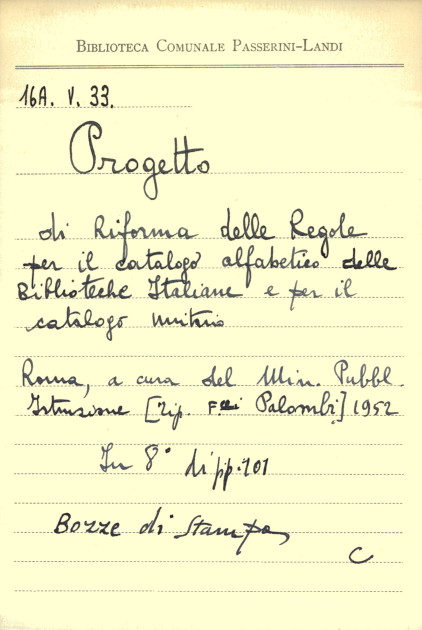 BIBLIOTECA COMUNALE PASSERINI-LANDI
16A. V. 33.
Progetto
di Riforma delle Regole
per il catalogo alfabetico delle
Biblioteche Italiane e per il
catalogo unitario
Roma, a cura del Min. Pubbl.
Istruzione [Tip. F.lli Palombi] 1952
In 8° di pp. 101
Bozze di Stampa
C